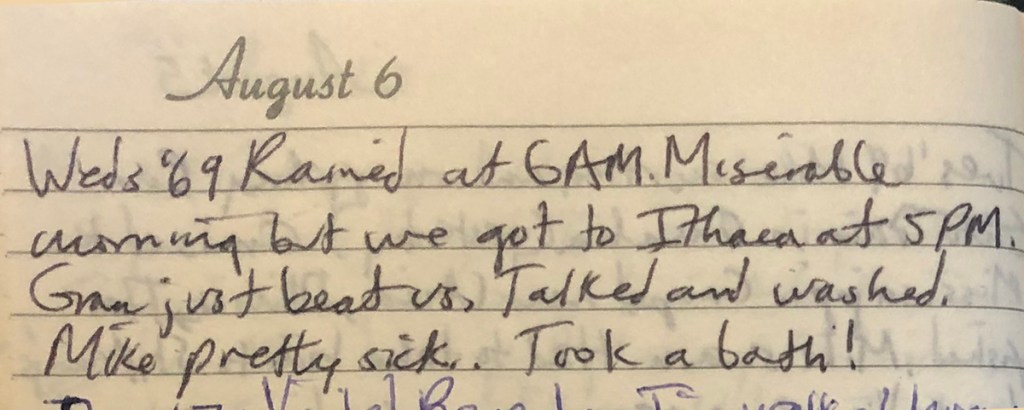 August 6
Weds '69 Rained at 6AM. Miserable
morning but we got to Ithaca at 5PM.
Gran just beat us. Talked and washed.
Mike pretty sick.. Took a bath!